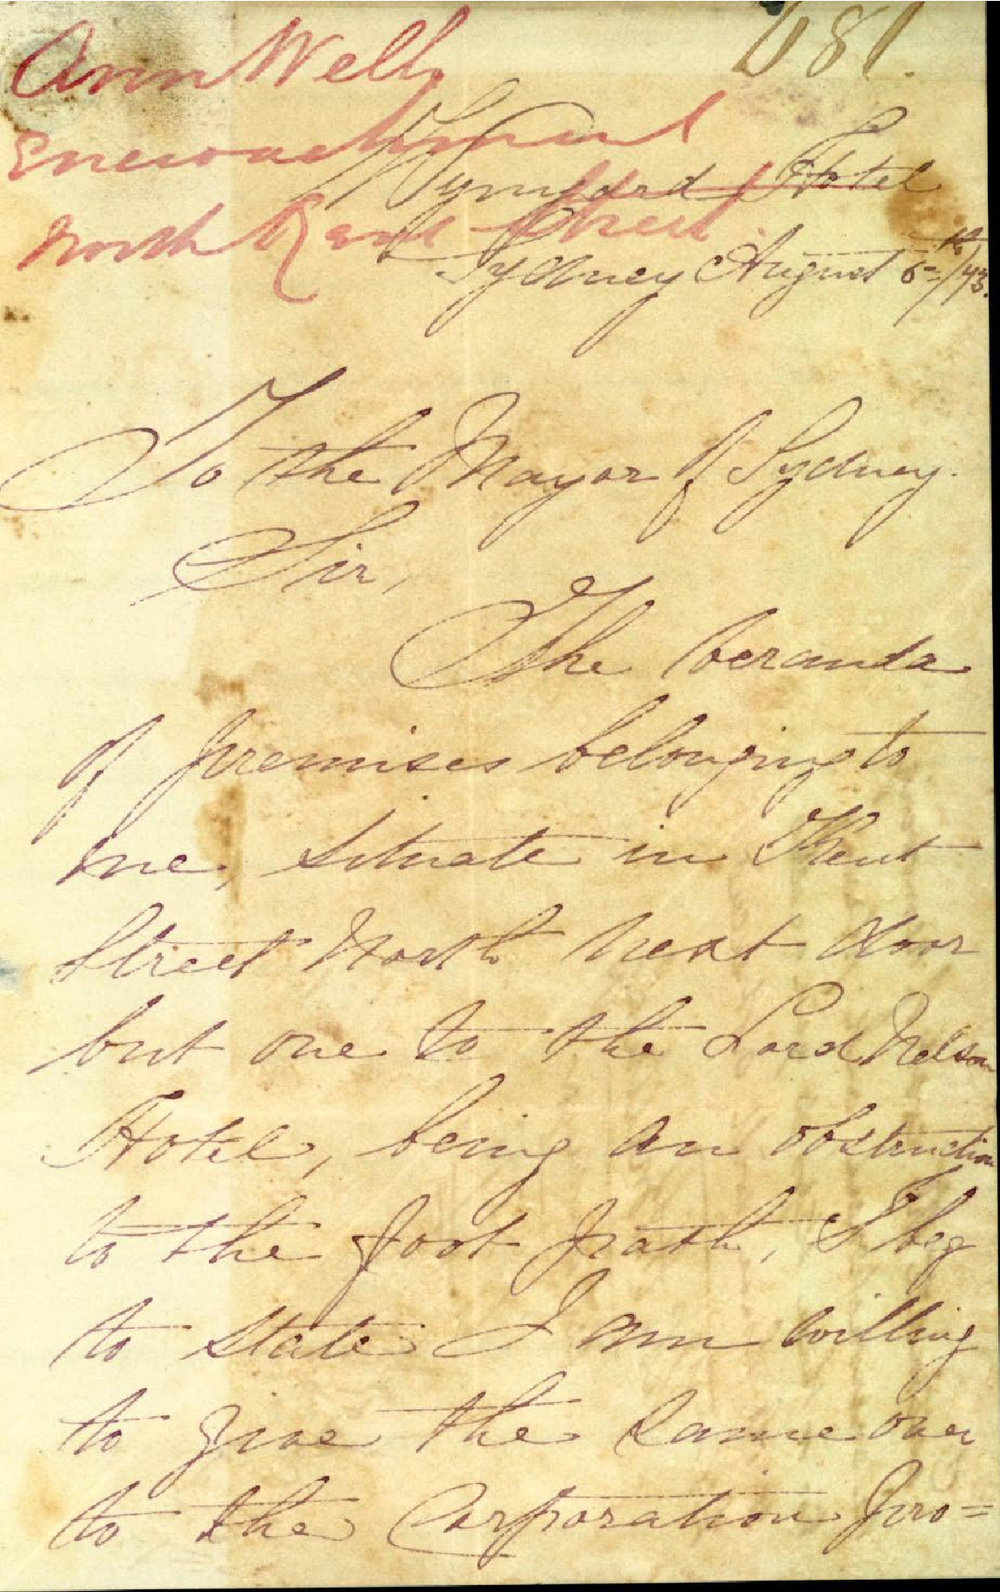 681.
Ann Wells
Encroachment
North Kent Street
Wynyard Hotel
Sydney August 5th/43.
To the Mayor of Sydney.
Sir,
The veranda
of premises belonging to
me, situate in Kent
Street North next door
but one to the Lord Nelson
Hotel, being an obstruction
to the foot path, I beg
to state I am willing
to give the same over
to the Corporation pro=